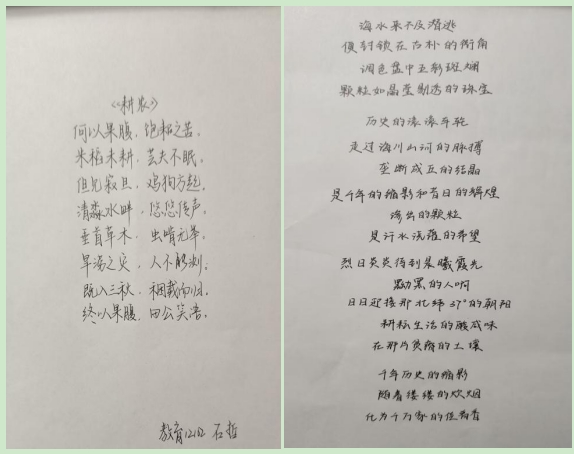 《耕农》
何以果腹，饱粘之苦。
朱稻未耕，芸夫不眠。
但见寂旦，鸡狗方起。
清淼水畔，悠悠传声。
垂首草木，虫啃无举。
旱涝之灾，人不能测。
既入三秋，稇载而归。
终以果腹，田公笑言。
教育1202 石哲
海水来不及潜逃
便封锁在古朴的衙角
调色盘中五彩斑斓
颗粒如晶莹剔透的珠宝
历史的滚滚车轮
走过海川山河的脉搏
垄断成丘的结晶
是千年的缩影和昔日的辉煌
渗出的颗粒
是汗水流落的希望
烈日炎炎待到晨曦霞光
黝黑的人啊
日日迎接那北纬37°的朝阳
耕耘生活的酸咸味
在那片贫瘠的土壤
千年历史的缩影
随着缕缕的炊烟
化为千万家的佳肴香